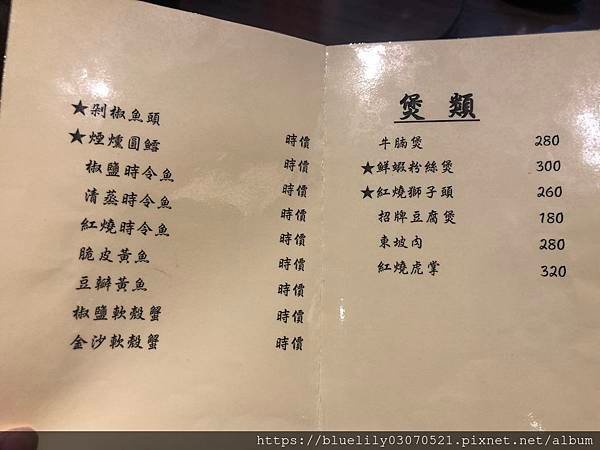 ★剁椒魚頭 時價
★煙燻圓鱈 時價
椒鹽時令魚 時價
清蒸時令魚 時價
紅燒時令魚 時價
脆皮黃魚 時價
豆瓣黃魚 時價
椒鹽軟殼蟹 時價
金沙軟殼蟹 時價
煲類
牛腩煲 280
★鮮蝦粉絲煲 300
★紅燒獅子頭 260
招牌豆腐煲 180
東坡肉 280
紅燒虎掌 320
https://bluelily03070521.pixnet.net/album